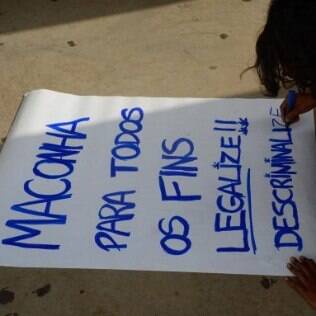 MACONHA
PARA TODOS
OS FINS
LEGALIZE!!
DESCRIMINALIZE